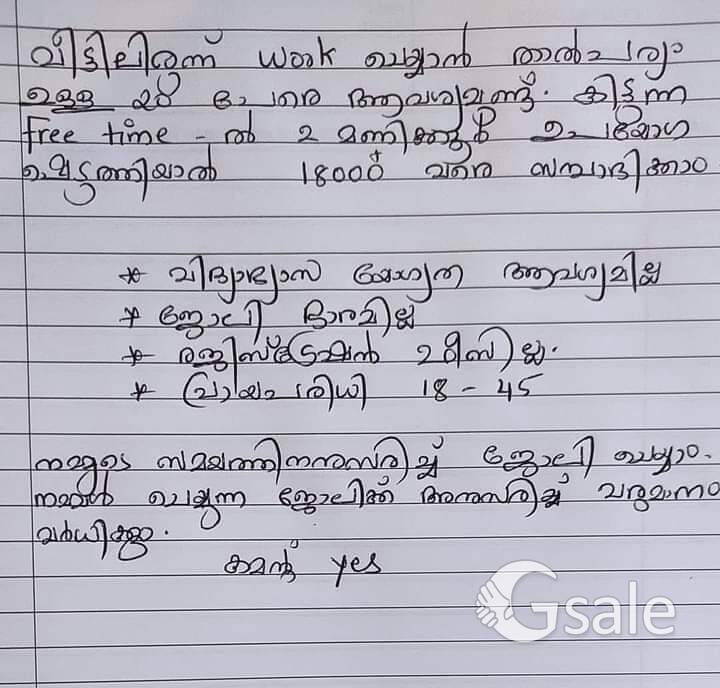 വീട്ടിലിരുന്ന് work ചെയ്യാൻ താൽപര്യം
ഉള്ള 28 പേരെ ആവശ്യമുണ്ട്. കിട്ടുന്ന
free time - ൽ 2 മണിക്കൂർ ഉപയോഗ
പെടുത്തിയാൽ 18000+ വരെ സമ്പാദിക്കാം
* വിദ്യാഭ്യാസ യോഗ്യത ആവശ്യമില്ല
* ജോലി ഭാരമില്ല
* രജിസ്ട്രേഷൻ ഫീസില്ല.
* പ്രായപരിധി 18 - 45
നമ്മുടെ സമയത്തിനനുസരിച്ച് ജോലി ചെയ്യാം.
നമ്മൾ ചെയ്യുന്ന ജോലിക്ക് അനുസരിച്ച് വരുമാനം
വർധിക്കും.
കമന്റ് yes
Gsale